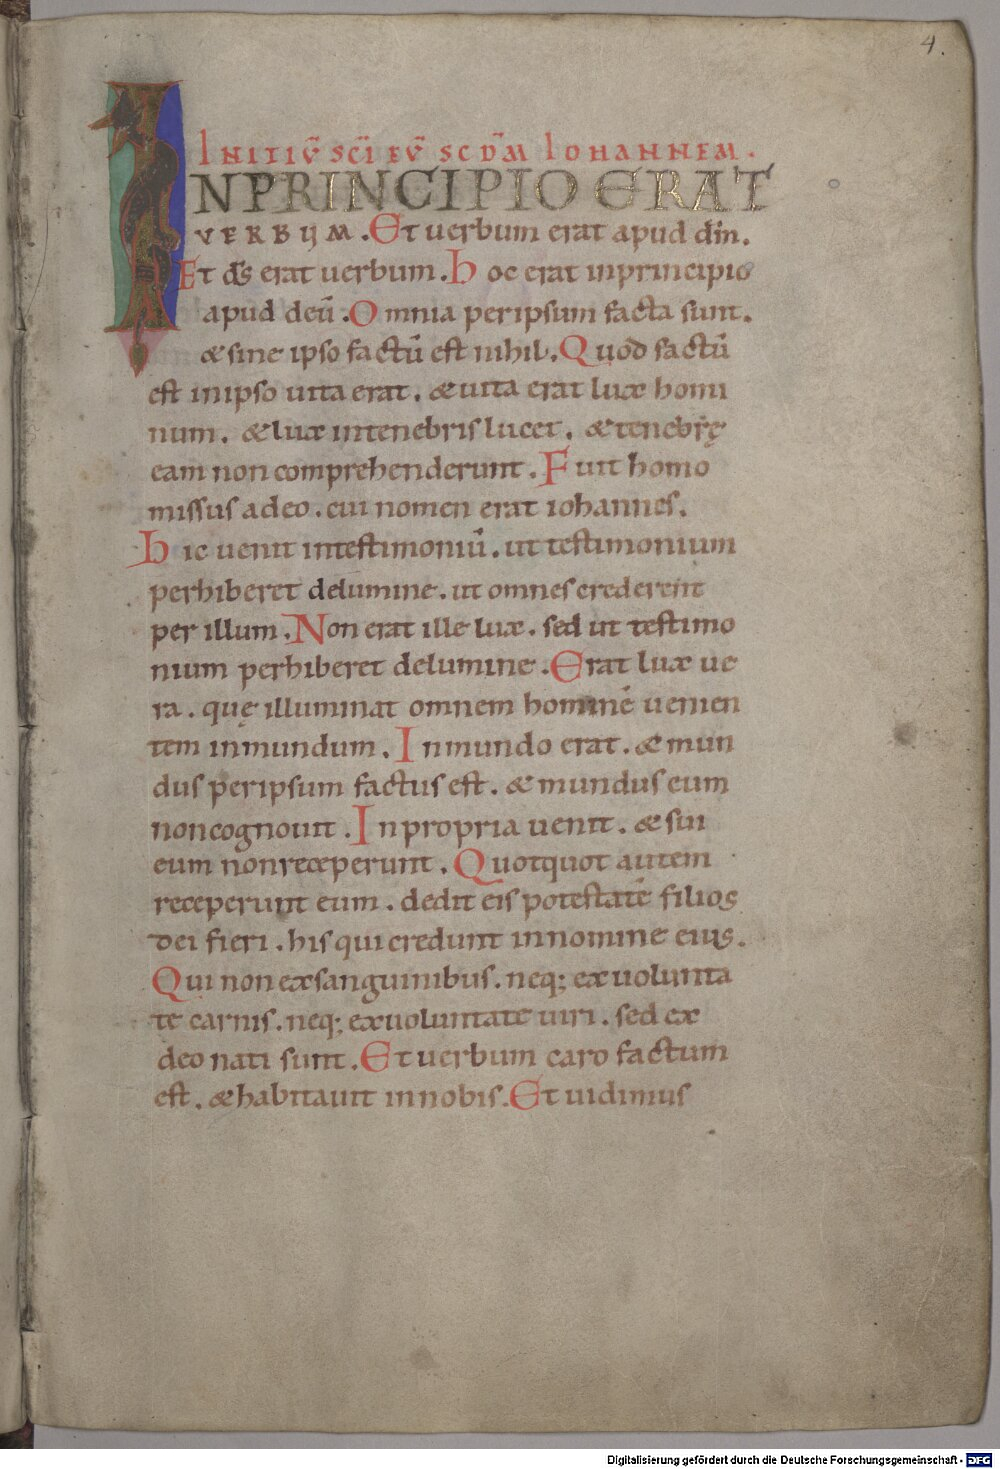 4.
INITIŪ SC̄I EŪ SCD̄M IOHANNEM.
INPRINCIPIO ERAT
VERBUM. Et uerbum erat apud dm̄.
Et ds̄ erat uerbum. Hoc erat inprincipio
apud deū. Omnia peripsum facta sunt.
& sine ipso factū est nihil. Quod factū
est inipso uita erat. & uita erat lux homi
num. & lux intenebris lucet. & tenebrę
eam non comprehenderunt. Fuit homo
missus adeo. cui nomen erat iohannes.
Hic uenit intestimoniū. ut testimonium
perhiberet delumine. ut omnes crederent
per illum. Non erat ille lux. sed ut testimo
nium perhiberet delumine. Erat lux ue
ra. quę illuminat omnem hominē uenien
tem inmundum. Inmundo erat. & mun
dus peripsum factus est. & mundus eum
noncognouit. Inpropria uenit. & sui
eum nonreceperunt. Quotquot autem
receperunt eum. dedit eis potestatē filios
dei fieri. his qui credunt innomine eius.
Qui non exsanguinibus. neq; ex uolunta
te carnis. neq; exuoluntate uiri. sed ex
deo nati sunt. Et uerbum caro factum
est. & habitauit innobis. Et uidimus
Digitalisierung gefördert durch die Deutsche Forschungsgemeinschaft - DFG